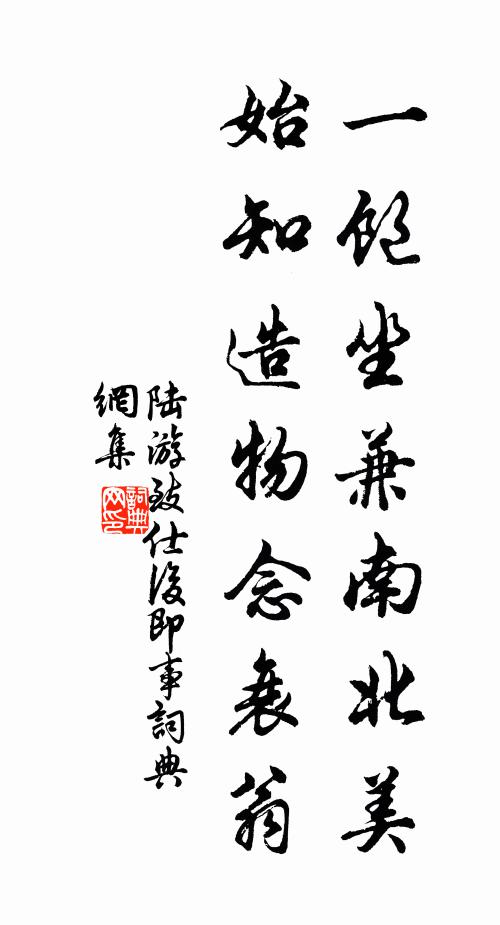 一飽坐兼南北美
始知造物念衰翁
陸游致仕後即事詞典
網集
詞典
网印